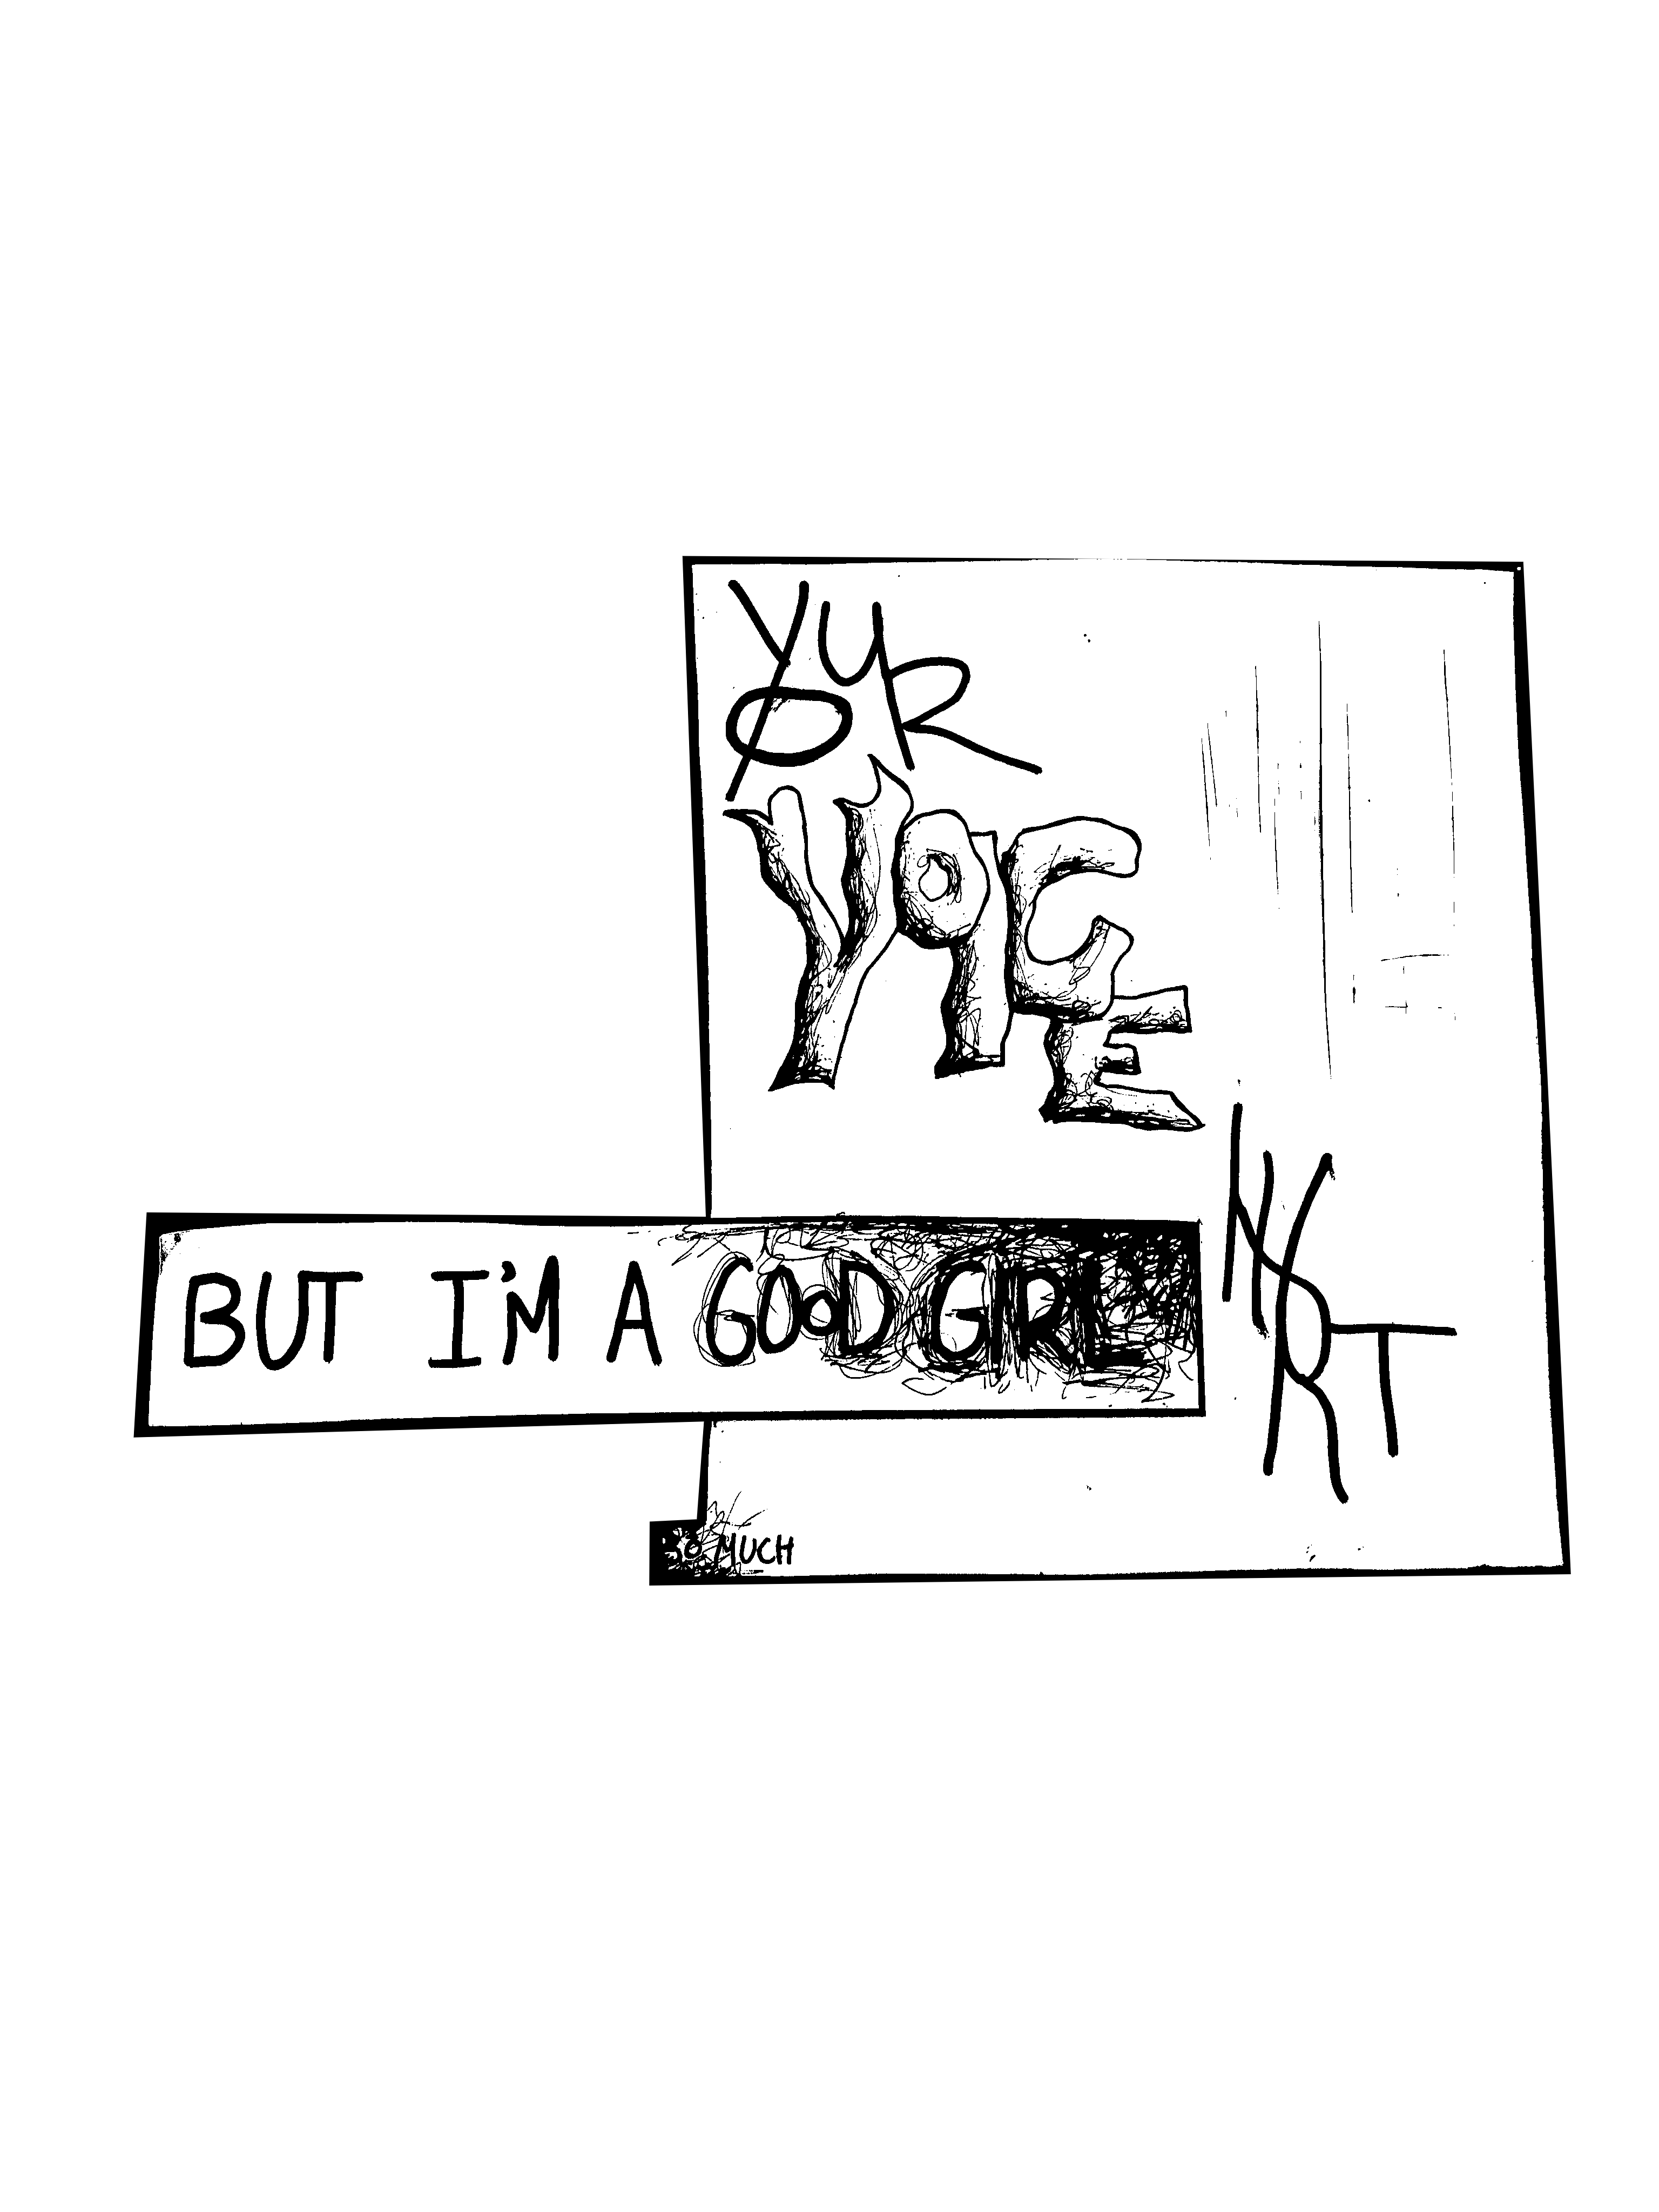 YOUR
VOICE
HURT
BUT I'M A GOOD GIRL
SO MUCH